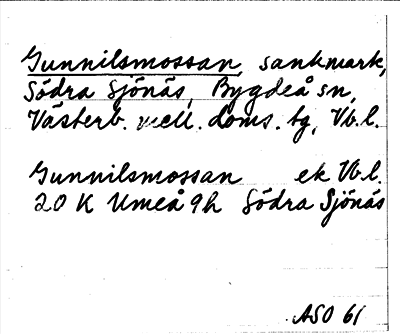 Gunnilsmossan, sankmark,
Södra Sjönäs, Bygdeå sn,
Västerb. mell. doms. tg, Vb.l.
Gunnilsmossan ek Vb.l.
20 K Umeå 9h Södra Sjönäs
ASO 61